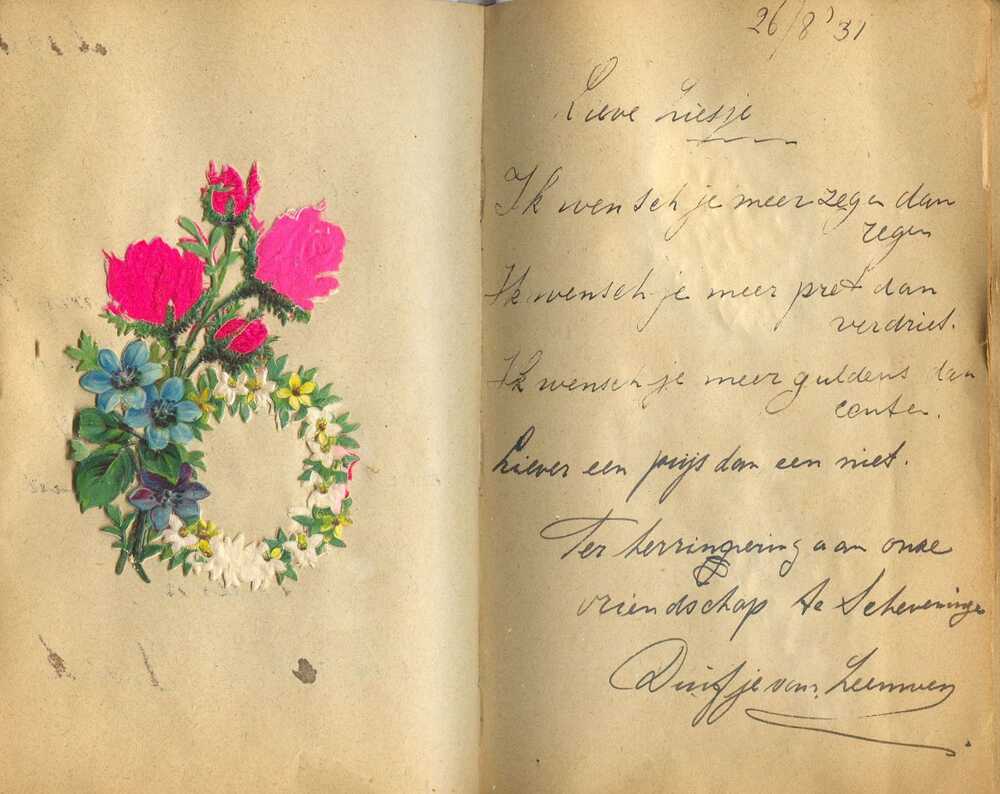 26/8 '31
Lieve Liesje
Ik wensch je meer zegen dan
regen
Ik wensch je meer pret dan
verdriet.
Ik wensch je meer guldens dan
centen.
Liever een prijs dan een niet.
Ter herringnering aan onze
vriendschap te Scheveningen
Duifje van Leeuwen